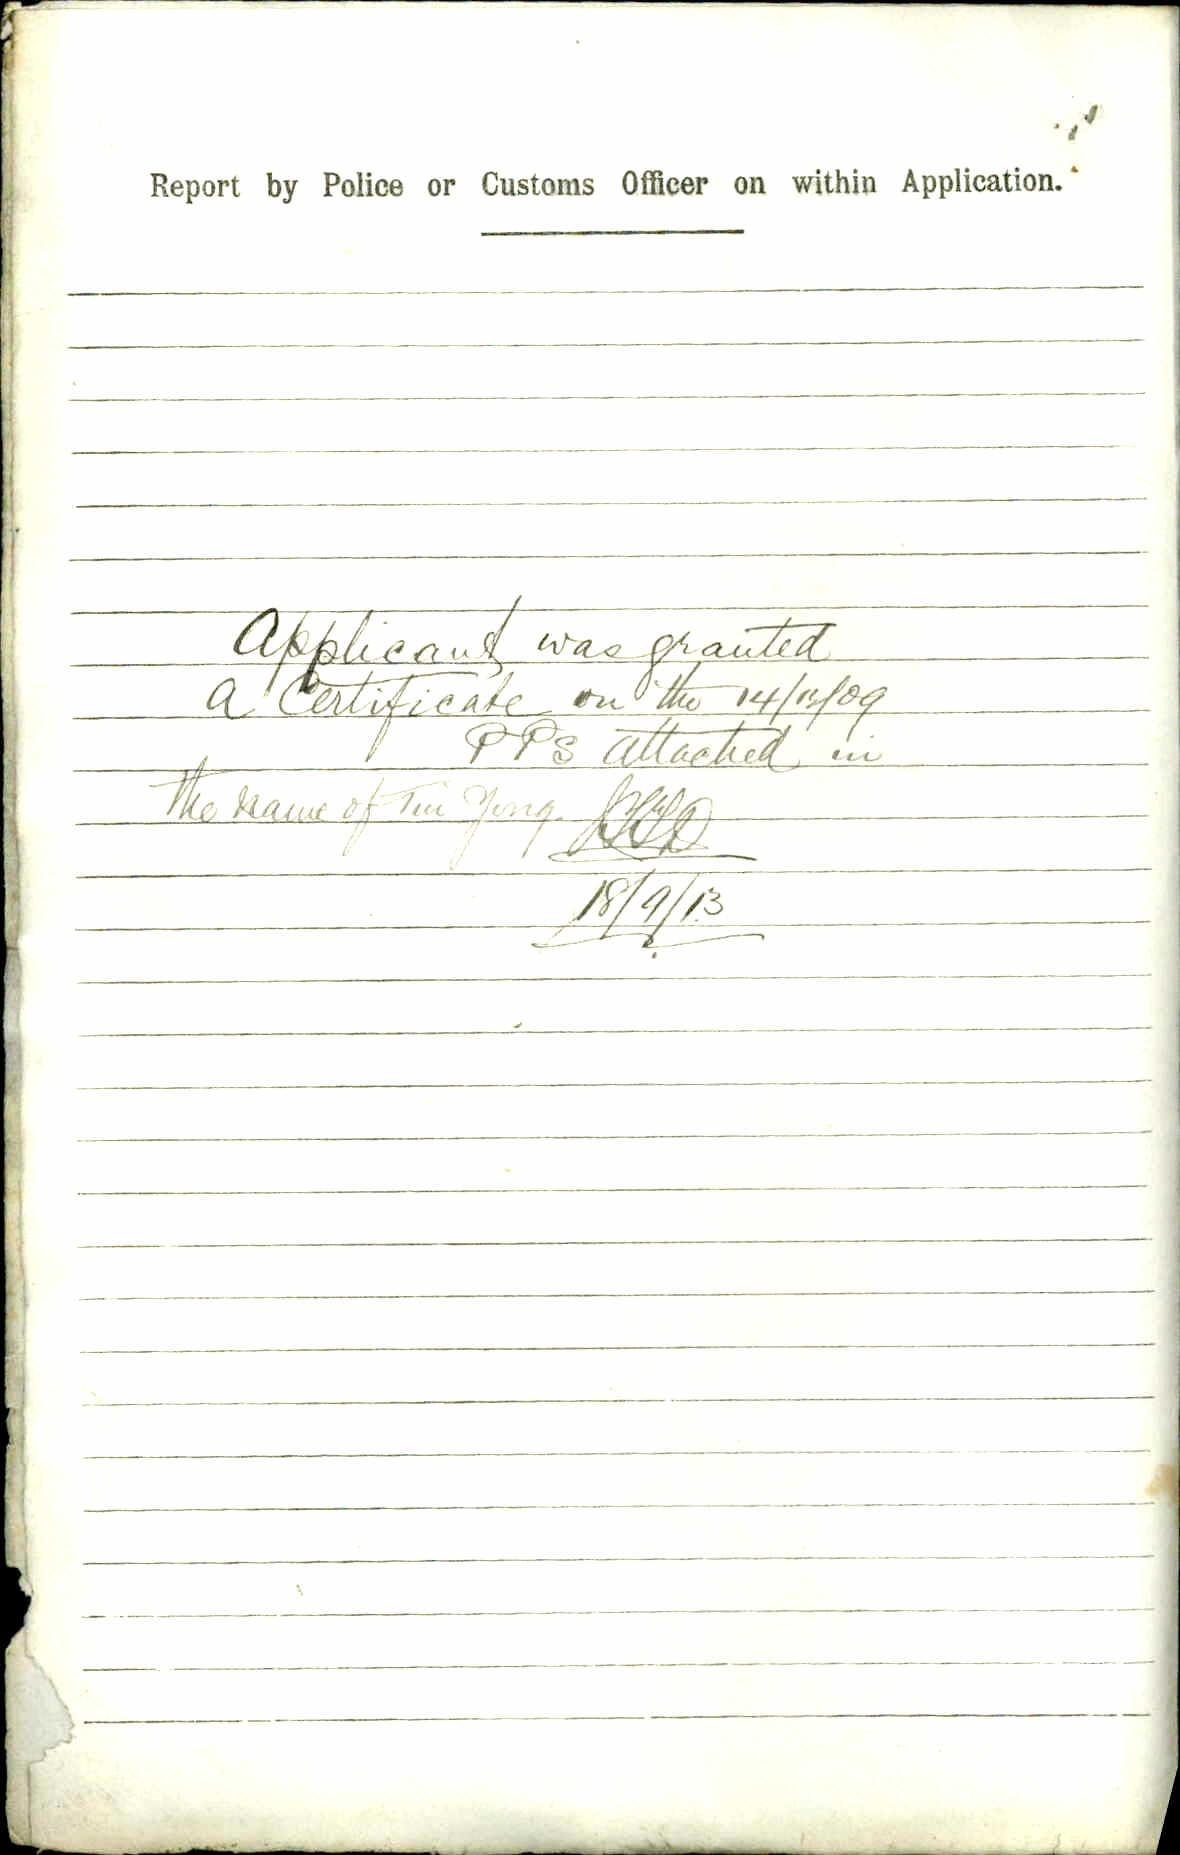 Report by Police or Customs Officer on within Application.
Applicant was granted
a Certificate on the 14/12/09
PPs attached in
the name of Tim Yong.
18/9/13